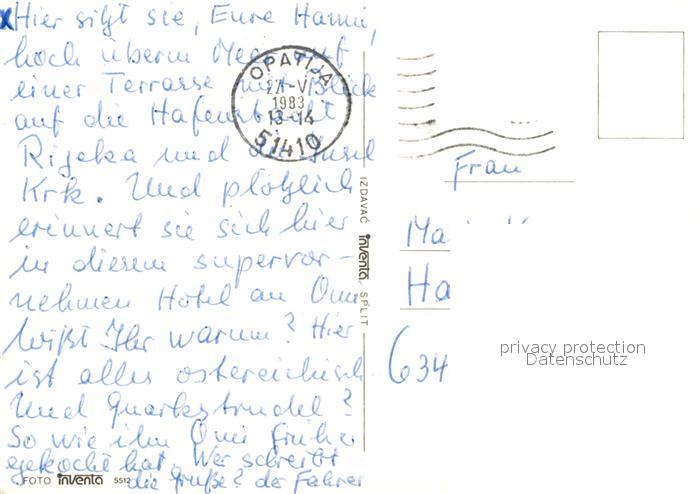 Hier sitzt sie, Eure Hanni,
hoch überm Meer auf
einer Terrasse mit Blick
auf die Hafenstadt
Rijeka und die Insel
Krk. Und plötzlich
erinnert sie sich hier
in diesem supervor-
nehmen Hotel an Omi
Wißt Ihr warum? Hier
ist alles östereichisch
Und Quarkstrudel?
So wie ihn Omi früher
gekocht hat. Wer schreibt
die Grüße? der Fahrer
FOTO inventa 5512
OPATIJA
27-V
1983
13-14
51410
IZDAVAČ inventa SPLIT
Frau
Ma
Ha
634
privacy protection
Datenschutz